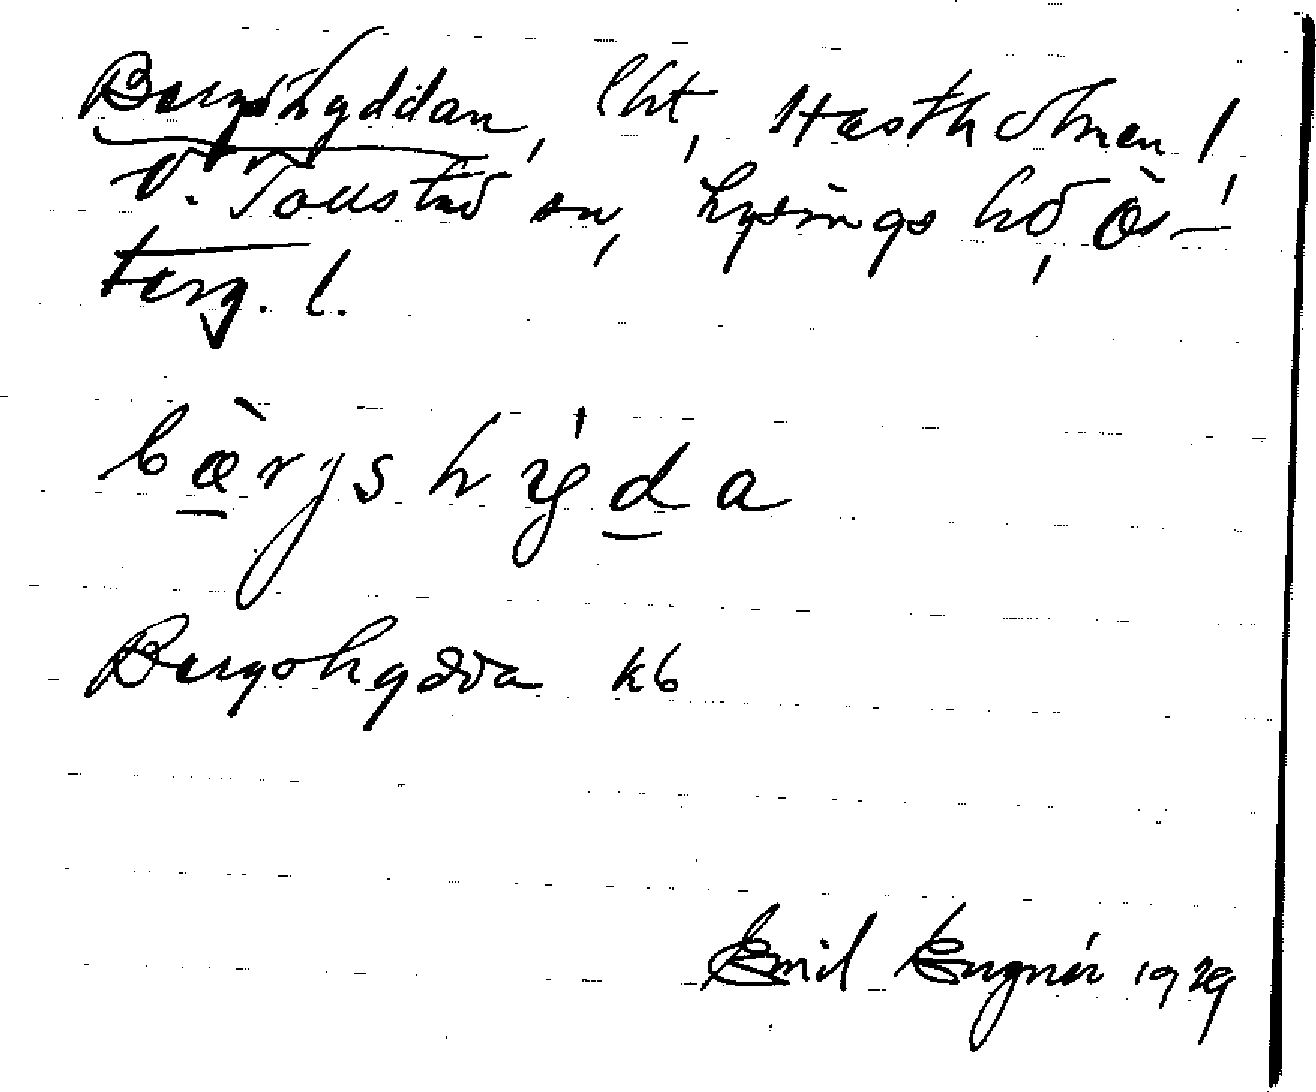 Bergshyddan, lht, Hästholmen,
V. Tollstad sn, Lysings hd, Ös-
terg. l.
bæ̀rjshy̍da
Bergshydda kb
Emil Engnér 1929